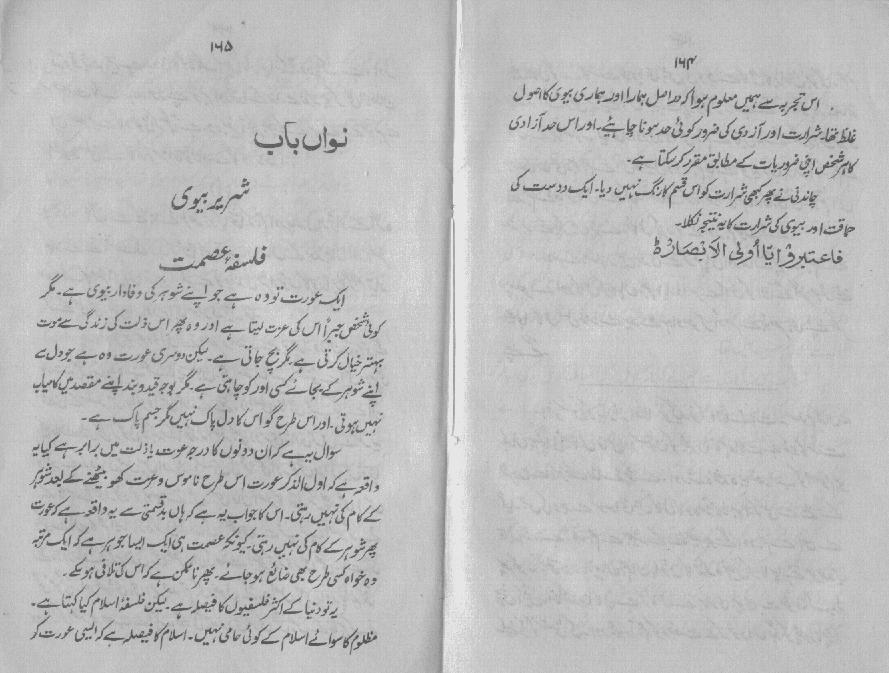 ۱۶۴
اس تجربہ سے ہمیں معلوم ہوا کہ دراصل ہمارا اور ہماری بیوی کا اصول
غلط تھا۔ شرارت اور آزادی کی ضرور کوئی حد ہونا چاہیئے۔ اور اس حد آزادی
کا ہر شخص اپنی ضروریات کے مطابق مقرر کر سکتا ہے۔
چاندنی نے پھر کبھی شرارت کو اس قسم کا رنگ نہیں دیا۔ ایک دوست کی
حماقت اور بیوی کی شرارت کا یہ نتیجہ نکلا۔
فاعتبروۡا یاۤ اُولی الۡاَبۡصَارِ ہ
۱۶۵
نواں باب
شریر بیوی
فلسفۂ عصمت
ایک عورت تو وہ ہے جو اپنے شوہر کی وفادار بیوی ہے۔ مگر
کوئی شخص جبراً اس کی عزت لیتا ہے اور وہ پھر اس ذلت کی زندگی سے موت
بہتر خیال کرتی ہے۔ مگر بچ جاتی ہے۔ لیکن دوسری عورت وہ ہے جو دل سے
اپنے شوہر کے بجائے کسی اور کو چاہتی ہے۔ مگر بوجہ قید و بند اپنے مقصد میں کامیاب
نہیں ہوتی۔ اور اس طرح گو اس کا دل پاک نہیں مگر جسم پاک ہے۔
سوال یہ ہے کہ ان دونوں کا درجہ عزت یا ذلت میں برابر ہے کیا یہ
واقعہ ہے کہ اول الذکر عورت اس طرح ناموس و عزت کھو بیٹھنے کے بعد شوہر
کے کام کی نہیں رہتی۔ اس کا جواب یہ ہے کہ ہاں بدقسمتی سے یہ واقعہ ہے کہ عورت
پھر شوہر کے کام کی نہیں رہتی۔ کیونکہ عصمت ہی ایک ایسا جوہر ہے کہ ایک مرتبہ
وہ خواہ کسی طرح بھی ضائع ہو جائے۔ پھر ناممکن ہے کہ اس کی تلافی ہو سکے۔
یہ تو دنیا کے اکثر فلسفیوں کا فیصلہ ہے۔ لیکن فلسفۂ اسلام کیا کہتا ہے۔
مظلوم کا سوائے اسلام کے کوئی حامی نہیں۔ اسلام کا فیصلہ ہے کہ ایسی عورت گو